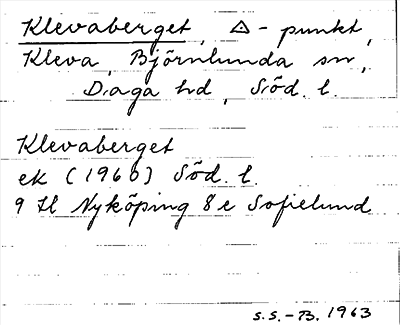 Klevaberget, △-punkt,
Kleva, Björnlunda sn,
Daga hd, Söd. l.
Klevaberget
ek (1960) Söd. l.
9 H Nyköping 8 e Sofielund
S.S.-B. 1963